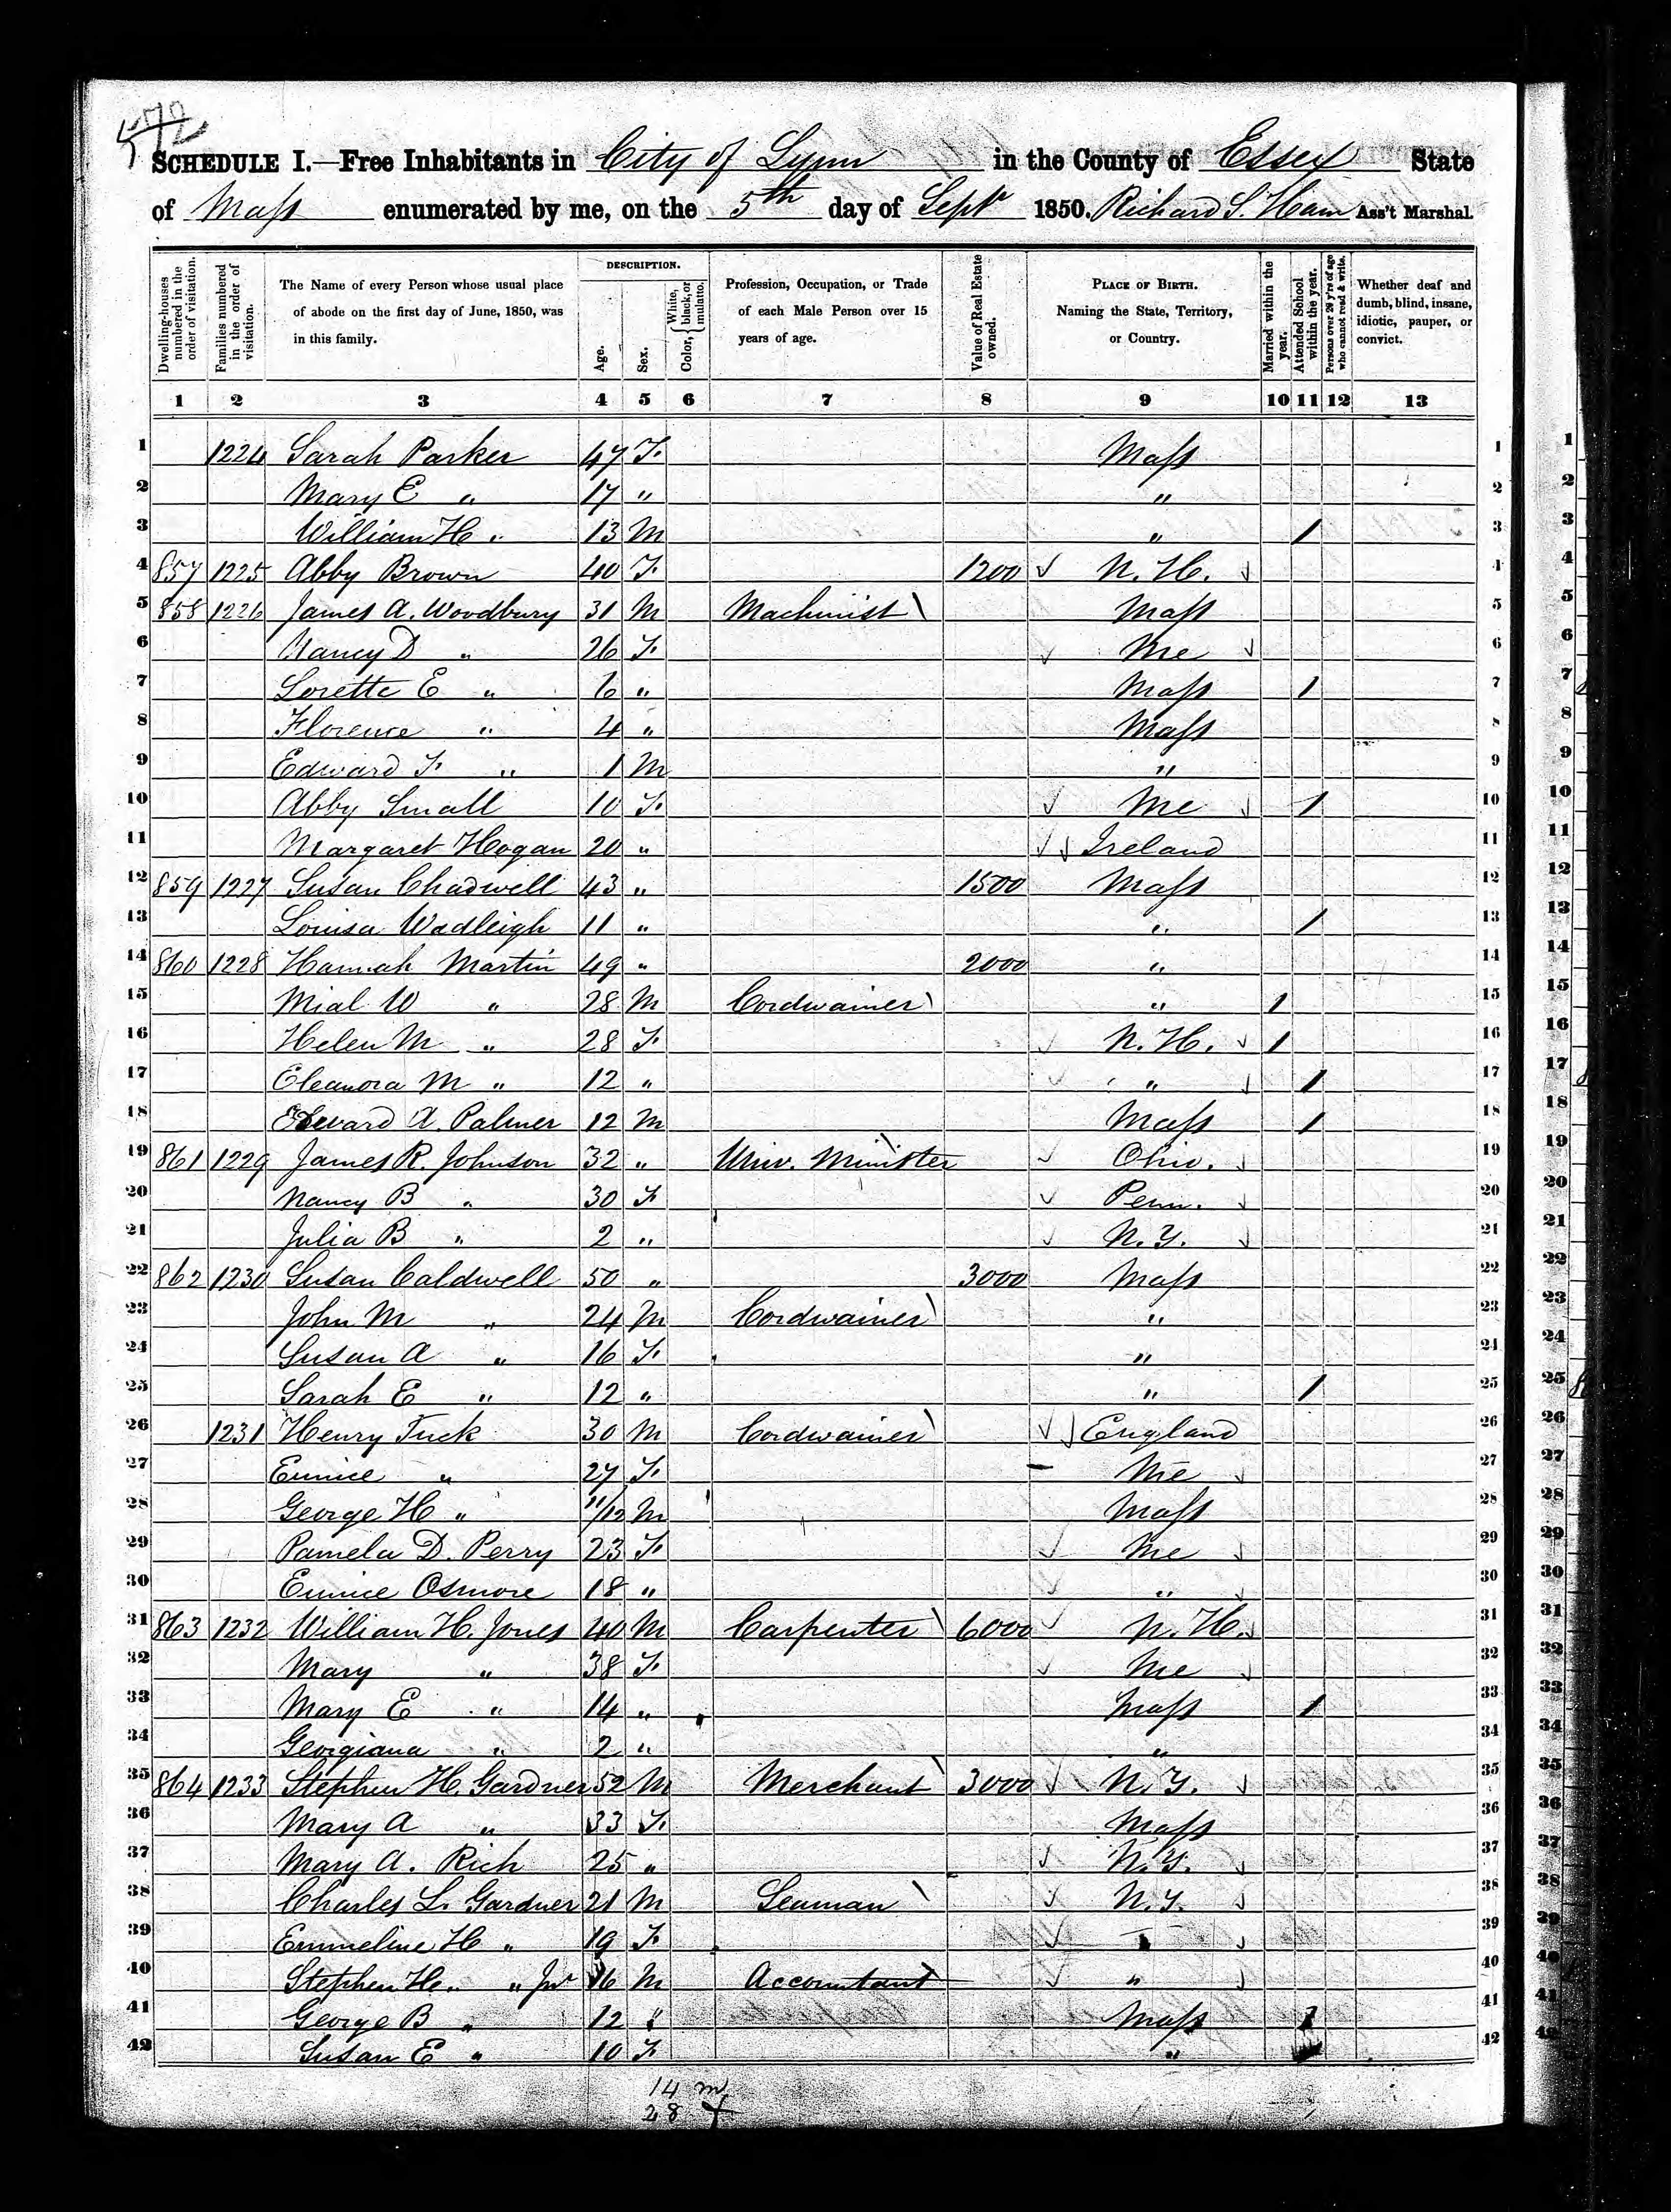 572
SCHEDULE I.—Free Inhabitants in City of Lynn in the County of Essex State
of Mass enumerated by me, on the 5th day of Sept 1850. Richard S. Ham Ass't Marshal.
Dwelling-houses numbered in the order of visitation.
Families numbered in the order of visitation.
The Name of every Person whose usual place of abode on the first day of June, 1850, was in this family.
DESCRIPTION.
Age.
Sex.
Color, { White, black, or mulatto.
Profession, Occupation, or Trade of each Male Person over 15 years of age.
Value of Real Estate owned.
PLACE OF BIRTH. Naming the State, Territory, or Country.
Married within the year.
Attended School within the year.
Persons over 20 y'rs of age who cannot read & write.
Whether deaf and dumb, blind, insane, idiotic, pauper, or convict.
1 2 3 4 5 6 7 8 9 10 11 12 13
1 1224 Sarah Parker 47 F. Mass 1
2 Mary E " 17 " " 2
3 William H " 13 M " / 3
4 857 1225 Abby Brown 40 F. 1200 √ N. H. √ 4
5 858 1226 James A. Woodbury 31 M Machinist \ Mass 5
6 Nancy D " 26 F. √ Me √ 6
7 Lorette E " 6 " Mass / 7
8 Florence " 4 " Mass 8
9 Edward F " 1 M " 9
10 Abby Small 10 F. √ Me √ / 10
11 Margaret Hogan 20 " √√ Ireland 11
12 859 1227 Susan Chadwell 43 " 1500 Mass 12
13 Louisa Wadleigh 11 " " / 13
14 860 1228 Hannah Martin 49 " 2000 " 14
15 Mial W " 28 M Cordwainer \ " / 15
16 Helen M " 28 F. √ N. H. √ / 16
17 Eleanora M " 12 " √ " √ / 17
18 Edward A. Palmer 12 M Mass / 18
19 861 1229 James R. Johnson 32 " Univ. Minister √ Ohio. √ 19
20 Nancy B " 30 F √ Penn. √ 20
21 Julia B " 2 " √ N. Y. √ 21
22 862 1230 Susan Caldwell 50 " 3000 Mass 22
23 John M " 24 M Cordwainer \ " 23
24 Susan A " 16 F. " 24
25 Sarah E " 12 " " / 25
26 1231 Henry Tuck 30 M Cordwainer \ √√ England 26
27 Eunice " 27 F. – Me √ 27
28 George H " 11/12 M Mass 28
29 Pamela D. Perry 23 F. √ Me √ 29
30 Eunice Osmore 18 " √ " √ 30
31 863 1232 William H. Jones 40 M Carpenter \ 6000 √ N. H. √ 31
32 Mary " 38 F. √ Me √ 32
33 Mary E " 14 " Mass / 33
34 Georgiana " 2 " " 34
35 864 1233 Stephen H. Gardner 52 M Merchant \ 3000 √ N. Y. √ 35
36 Mary A " 33 F. Mass 36
37 Mary A. Rich 25 " √ N. Y. √ 37
38 Charles L. Gardner 21 M Seaman \ √ N. Y. √ 38
39 Emmeline H " 19 F. √ √ 39
40 Stephen H. " Jnr 16 M Accountant √ " √ 40
41 George B " 12 " Mass / 41
42 Susan E " 10 F " / 42
14 m
28 f